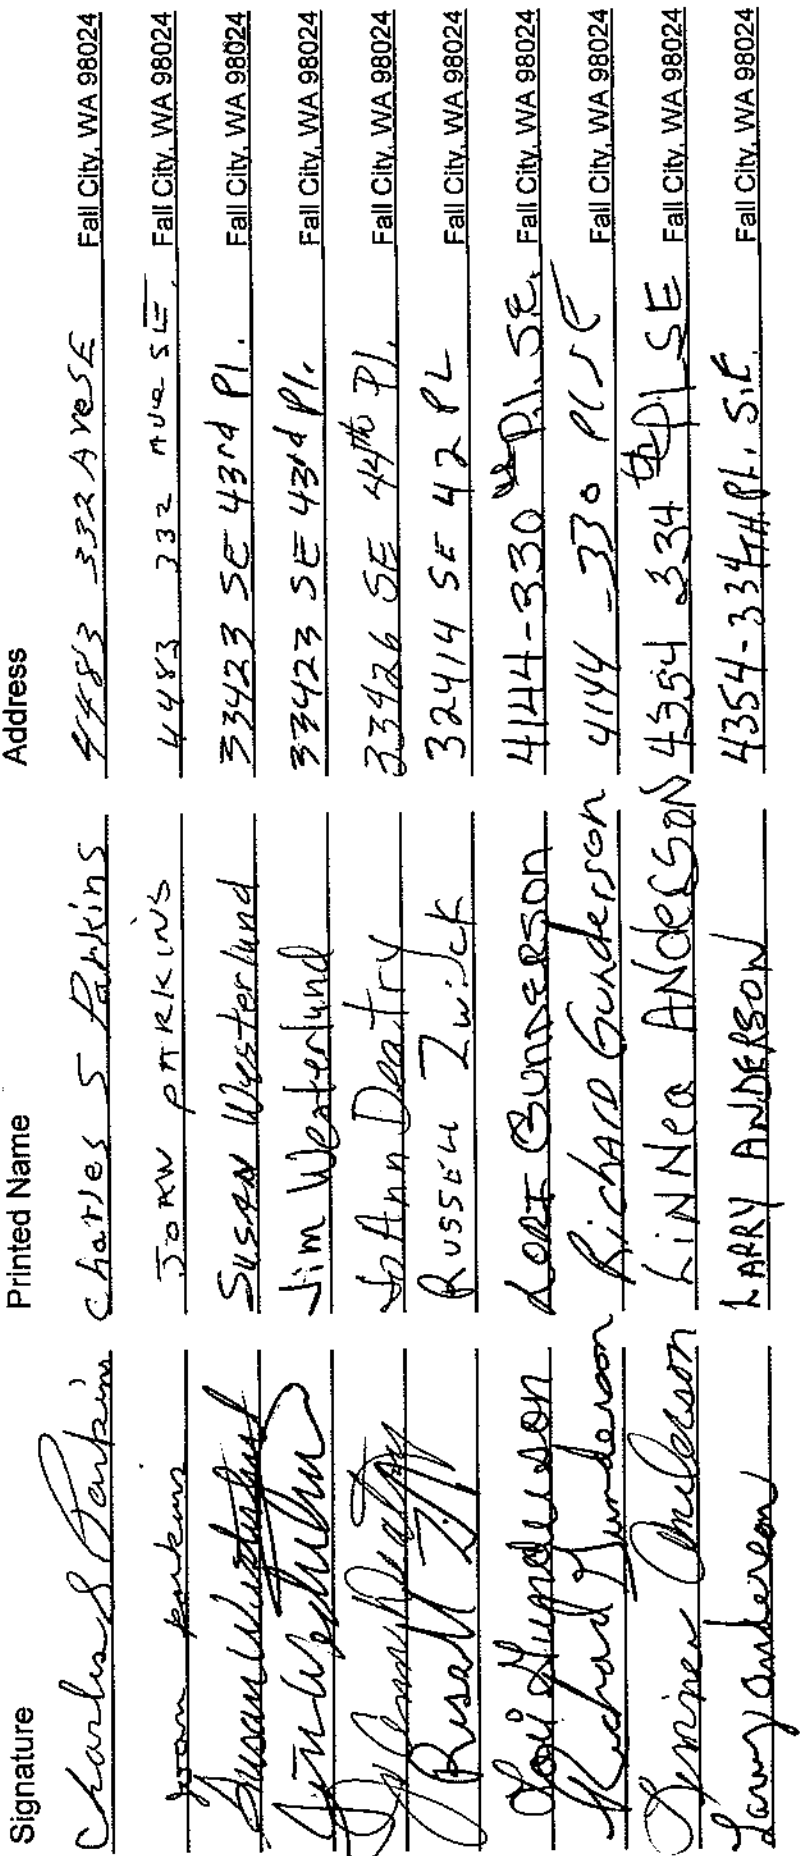 Signature Printed Name Address
Charles S Parkins Charles S Parkins 4483 332 Ave SE Fall City, WA 98024
parkins PARKINS 4483 332 Ave SE. Fall City, WA 98024
Susan Westerlund SUSAN Westerlund 33423 SE 43rd Pl. Fall City, WA 98024
Jim Westerlund Jim Westerlund 33423 SE 43rd Pl. Fall City, WA 98024
JoAnn Deatry 33426 SE 44th Pl. Fall City, WA 98024
Russell RUSSELL Zwick 32414 SE 42 PL Fall City, WA 98024
Lori Gunderson LORI GUNDERSON 4144-330 Pl. S.E. Fall City, WA 98024
Richard Gunderson Richard Gunderson 4144 - 330 Pl SE Fall City, WA 98024
Linnea Anderson LiNNea ANdeRSON 4354 334th Pl SE Fall City, WA 98024
Larry Anderson LARRY ANDERSON 4354-334TH.PL. S.E. Fall City, WA 98024